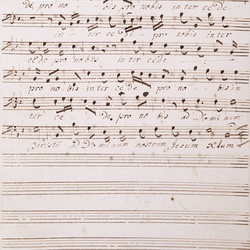 de pro no bis pro nobis inter cede
in ter ce de pro nobis inter
cede pro nobis inter cede
pro no bis inter cede pro no bis in
ter ce de pro no bis ad do mi num
Christū ad Do mi num nostrum Jesum Xtum